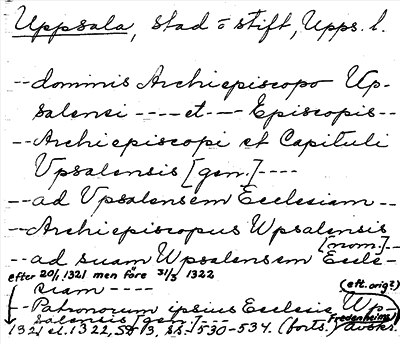 Uppsala, stad o stift, Upps. l.
--dominis Archiepiscopo Up-
salensi ---- et --- Episcopis--
--Archiepiscopi et Capituli
Vpsalensis [gen.]----
--ad Vpsalensem Ecclesiam--
--Archiepiscopus Wpsalensis
[nom.]--
--ad suam Wpsalensem Eccle-
efter 20/1 1321 men före 31/3 1322
siam ----
(eft. orig?)
--Patronorum ipsius Ecclesie Wp-
salensis [gen.]---
Fredenheims
1321 el. 1322, SD 3, ss. 530-534. (forts.) avskr.